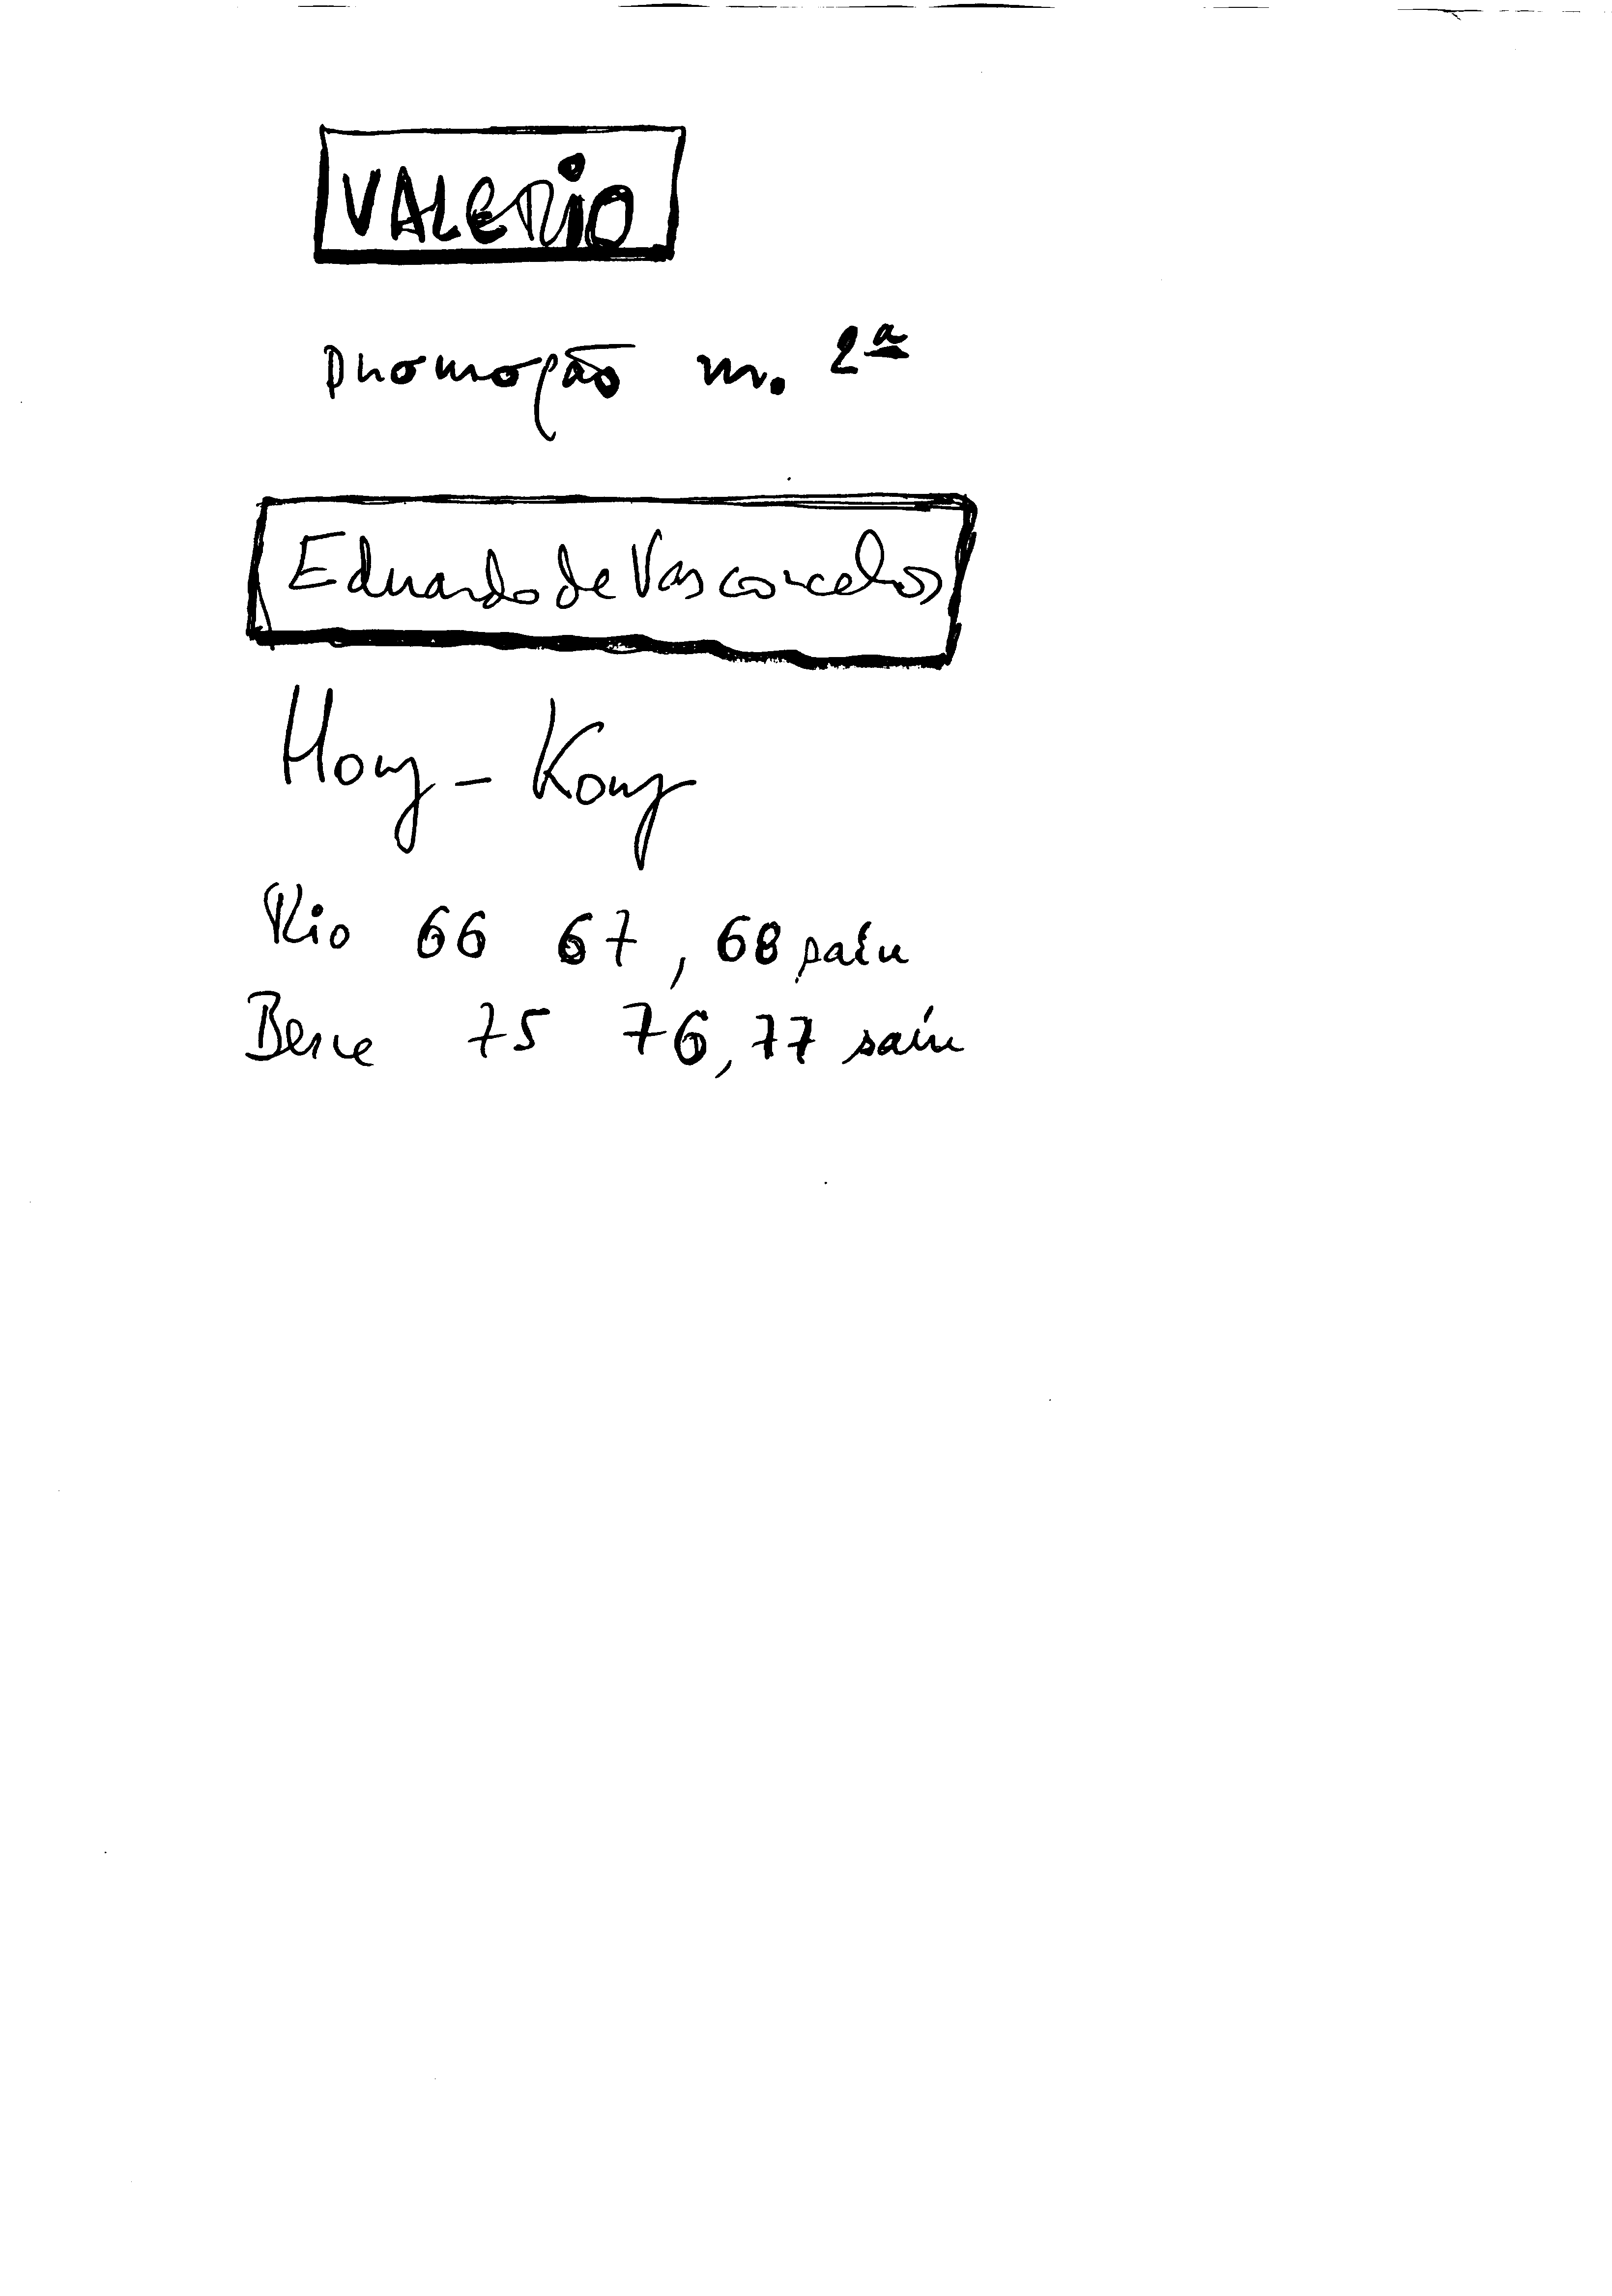 VALERiO
promoção m. 2ª
Eduardo de Vasconcelos
Hong - Kong
Rio 66 67, 68 saíu
Berne 75 76, 77 saíu